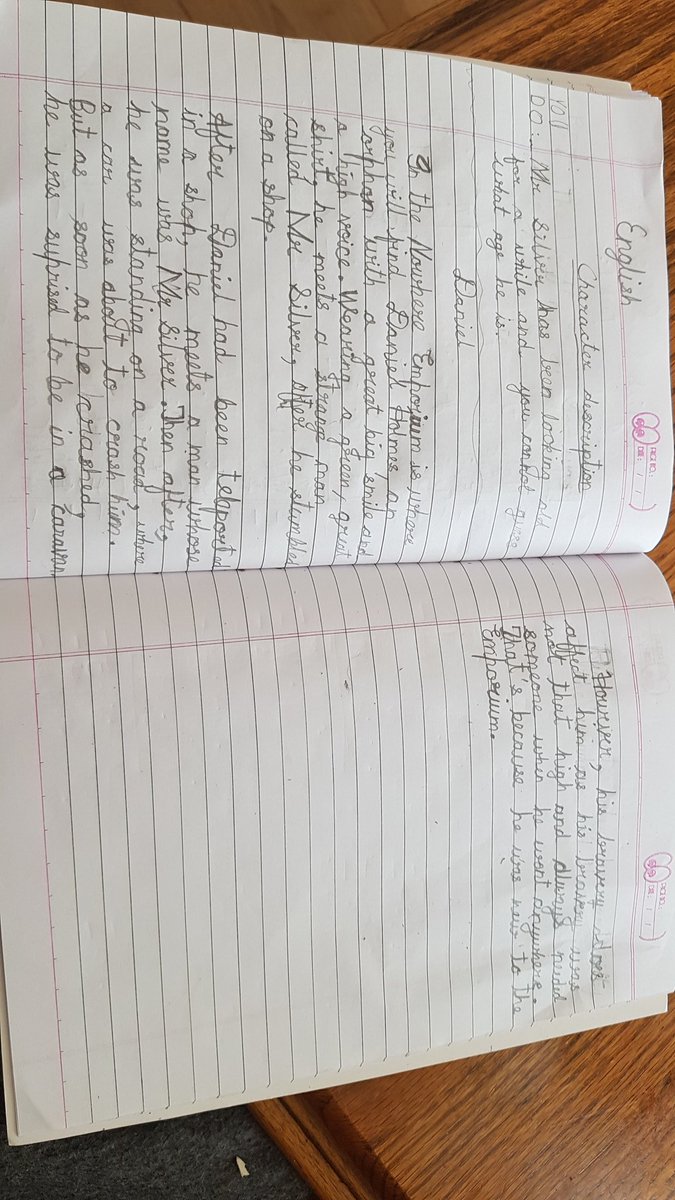 English
PAGE NO.:
DATE: / /
Character description
10/1
DO:. Mr Silver has been looking old
for a while and you cannot guess
what age he is.
Daniel
In the Nowhere Emporium is where
you will find Daniel Holms an
orphan with a great big smile and
a high voice. Wearing a green, great
shirt, he meets a strange man
called Mr Silver, after he stumbles
on a shop.
After Daniel had been teleported
in a shop, he meets a man whose
name was Mr Silver. Then after,
he was standing on a road, where
a car was about to crash him.
But as soon as he crashed,
he was suprised to be in a caravan.
PAGE NO.:
DATE: / /
However, his bravery does
affect him as his bravery was
not that high and always needed
someone when he went anywhere.
That's because he was new to the
Emporium.